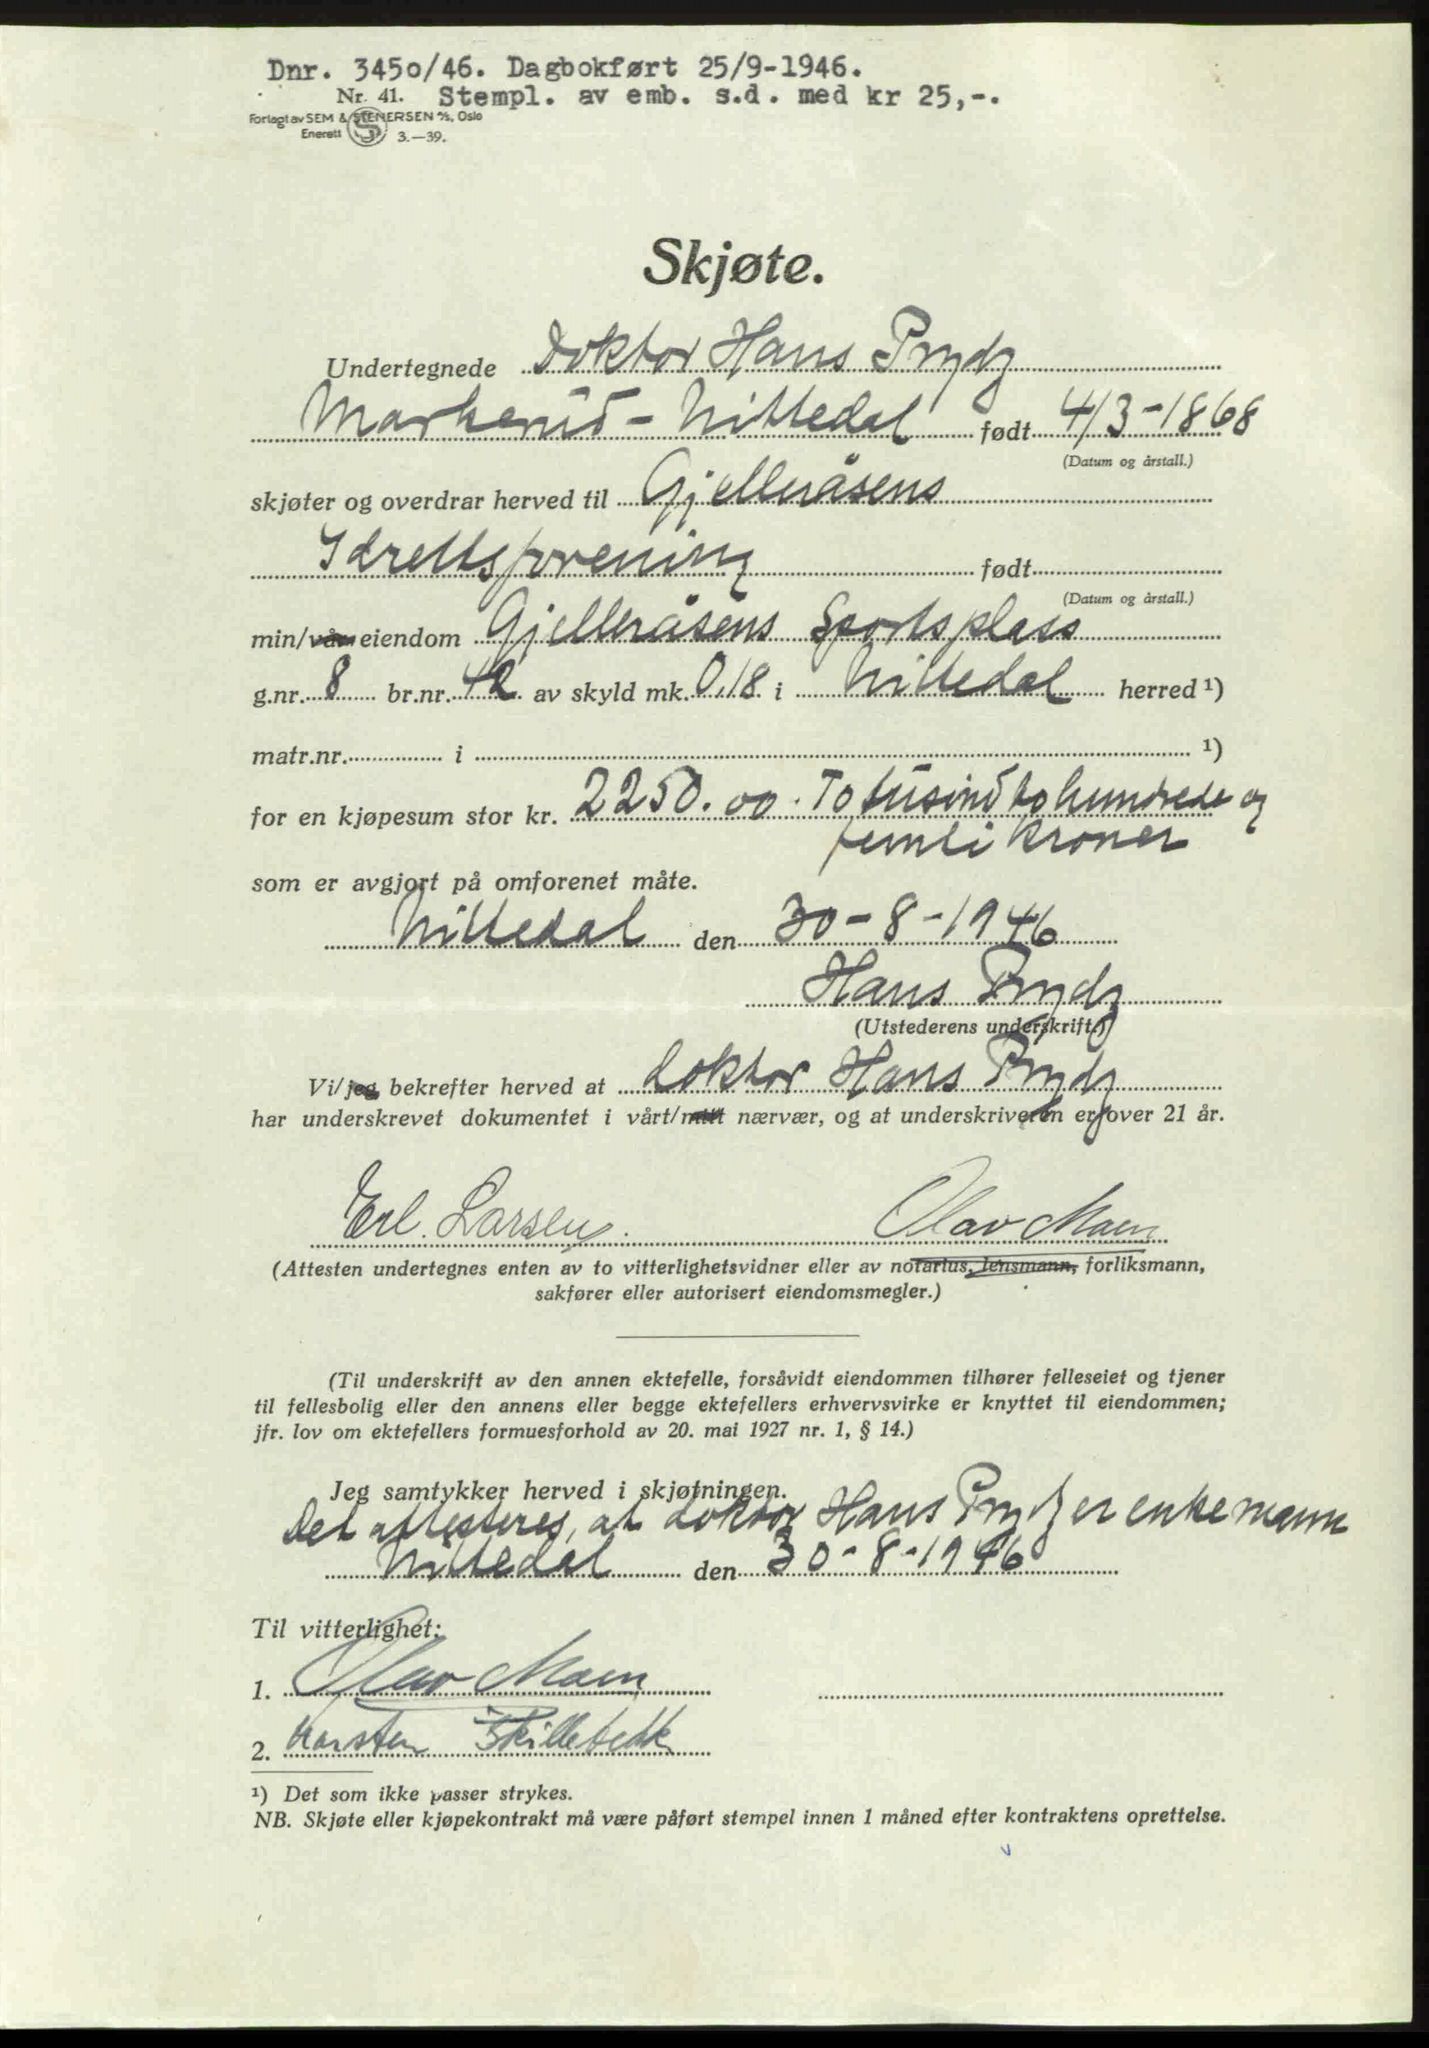 Dnr. 3450/46. Dagbokført 25/9-1946.
Nr. 41. Stempl. av emb. s.d. med kr 25,-.
Forlagt av SEM & STENERSEN A/S, Oslo
Enerett S 3.—39.
Skjøte.
Undertegnede Doktor Hans Prydz
Markerud - Nittedal født 4/3-1868
(Datum og årstall.)
skjøter og overdrar herved til Gjelleråsens
Idrettsforening født
(Datum og årstall.)
min/vår eiendom Gjelleråsens Sportsplass
g.nr. 8 br.nr. 42 av skyld mk. 0,18 i Nittedal herred ¹)
matr.nr. i ¹)
for en kjøpesum stor kr. 2250.00. Totusindtohundrede og
femti kroner
som er avgjort på omforenet måte.
Nittedal den 30-8-1946
Hans Prydz
(Utstederens underskrift.)
Vi/jeg bekrefter herved at doktor Hans Prydz
har underskrevet dokumentet i vårt/mitt nærvær, og at underskriveren er over 21 år.
Erl. Larsen. Olav Moen
(Attesten undertegnes enten av to vitterlighetsvidner eller av notarius, lensmann, forliksmann,
sakfører eller autorisert eiendomsmegler.)
(Til underskrift av den annen ektefelle, forsåvidt eiendommen tilhører felleseiet og tjener
til fellesbolig eller den annens eller begge ektefellers erhvervsvirke er knyttet til eiendommen;
jfr. lov om ektefellers formuesforhold av 20. mai 1927 nr. 1, § 14.)
Jeg samtykker herved i skjøtningen.
Det attesteres, at doktor Hans Prydz er enkemann
Nittedal den 30-8-1946
Til vitterlighet:
1. Olav Moen
2. Karsten Skillebekk
¹) Det som ikke passer strykes.
NB. Skjøte eller kjøpekontrakt må være påført stempel innen 1 måned efter kontraktens oprettelse.